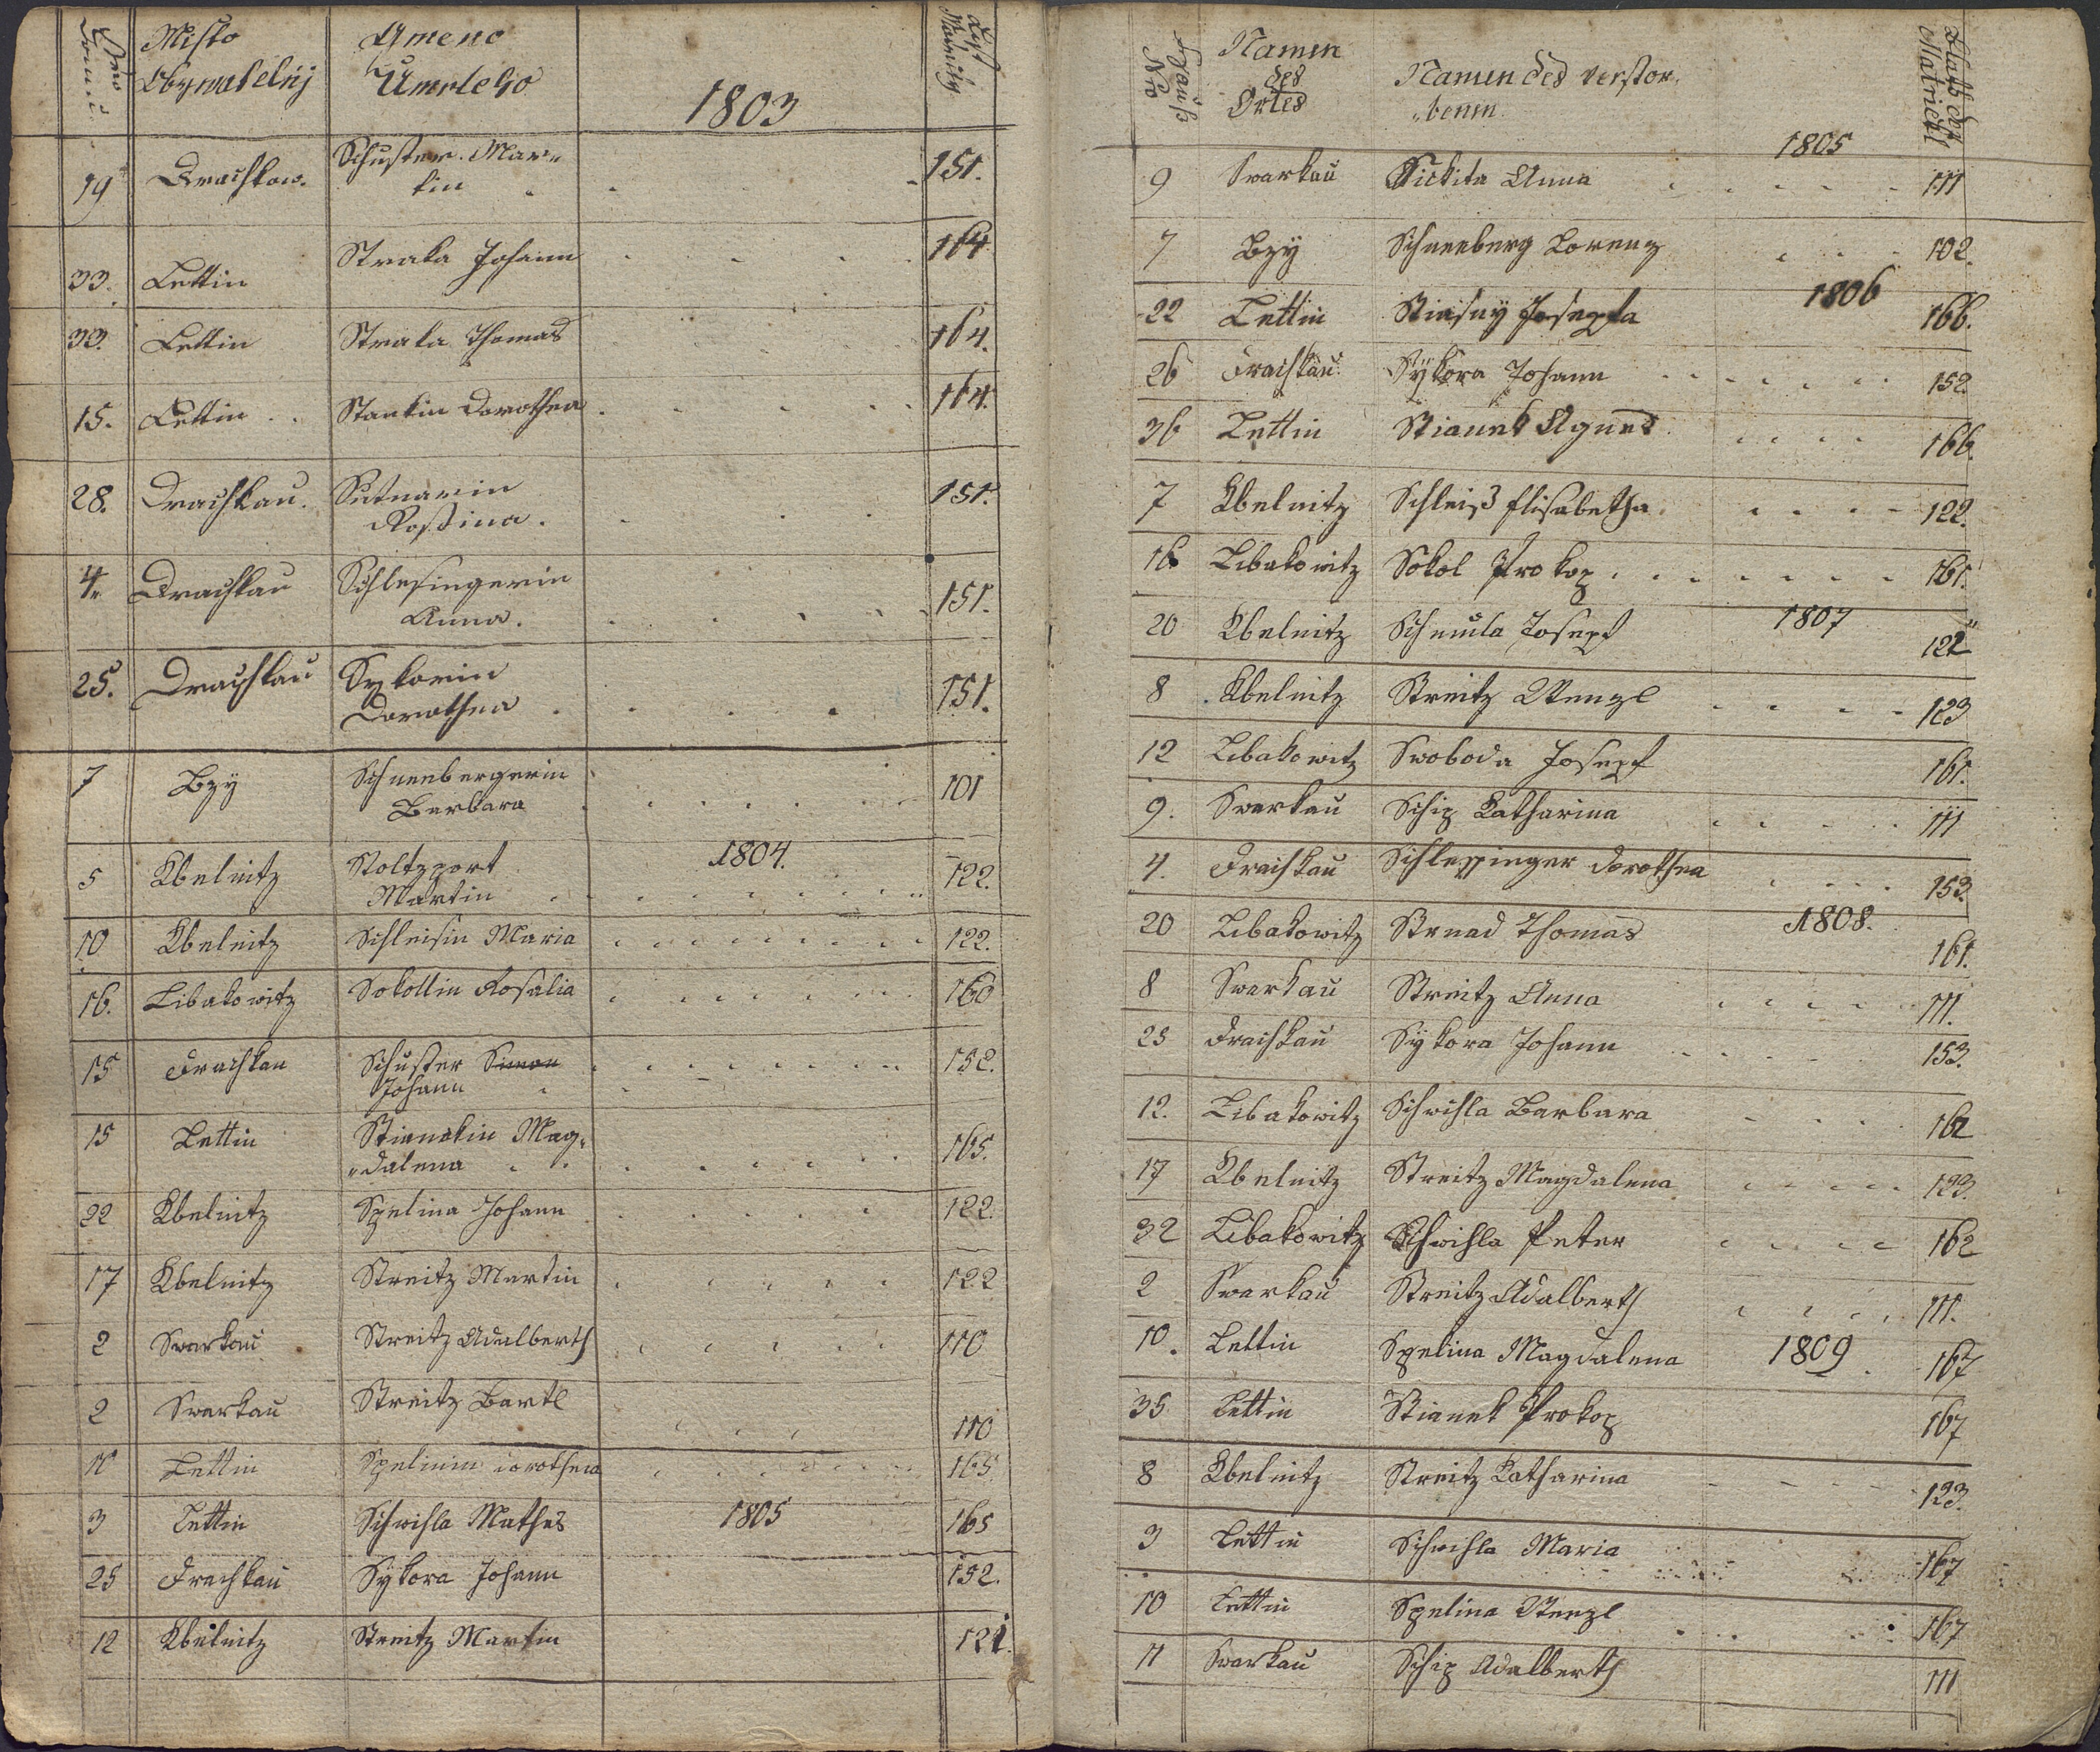 Misto
Obywatelnj
Umeno
Umrleho
1803
List
Matriky
19 Drachkow. Schuster Mar„
tin 151.
33. Lettin Straka Johann 164
33. Lettin Straka Thomas 164.
15. Lettin Stankin Dorothea 164.
28. Drachkau. Sutnarin
Rosina. 151.
4. Drachkau Schlesingerin
Anna. 151.
25. Drachkau Sykorin
Dorothea 151.
7 Bzÿ Schneebergerin
Barbara 101
5 Kbelnitz Stoltzport 1804.
Martin 122.
10 Kbelnitz Schleisin Maria 122.
16. Libakowitz Sokollin Rosalia 160
15 Drachkau Schuster Simon
Johann 152.
15 Lettin Stianekin Mag„
„dalena 165.
22 Kbelnitz Spelina Johann 122.
17 Kbelnitz Streitz Martin 122
2 Swarkau Streitz Adalberth 110
2 Swarkau Streitz Bartl 110
11 Lettin Spelinin Dorothea 165
3 Lettin Schwihla Mathes 1805 165
25 Drachkau Sÿkora Johann 152.
12 Kbelnitz Streitz Martin 121.
Hauß
Nro
Namen
des
Ortes
Namen des verstor„
„benen.
Blatt der
Matrickl
1805
9 Swarkau Sickita Anna 111
7 Bzÿ Schneeberg Lorenz 102.
22 Lettin Stiasny Josepha 1806 166.
26 Drachkau Sÿkora Johann 152.
36 Lettin Stianek Agnes 166.
7 Kbelnitz Schleiß Elisabetha 122.
16 Libakowitz Sokol Prokop 161.
20 Kbelnitz Schmula Joseph 1807 122
8 Kbelnitz Streitz Wenzl 123
12 Libakowitz Swoboda Joseph 161.
9. Swarkau Schip Katharina 111
4. Drachkau Schlessinger Dorothea 153.
20 Libakowitz Strnad Thomas 1808. 161.
8 Swarkau Streitz Anna 111.
25 Drachkau Sÿkora Johann 153.
12. Libakowitz Schwihla Barbara 162
17 Kbelnitz Streitz Magdalena 123.
32 Libakowitz Schwihla Peter 162
2 Swarkau Streitz Adalberth 111.
10. Lettin Spelina Magdalena 1809 167
35 Lettin Stianek Prokop 167
8 Kbelnitz Streitz Katharina 123.
3 Lettin Schwihla Maria 167
10 Lettin Spelina Wenzl 167
11 Swarkau Schip Adalberth 111